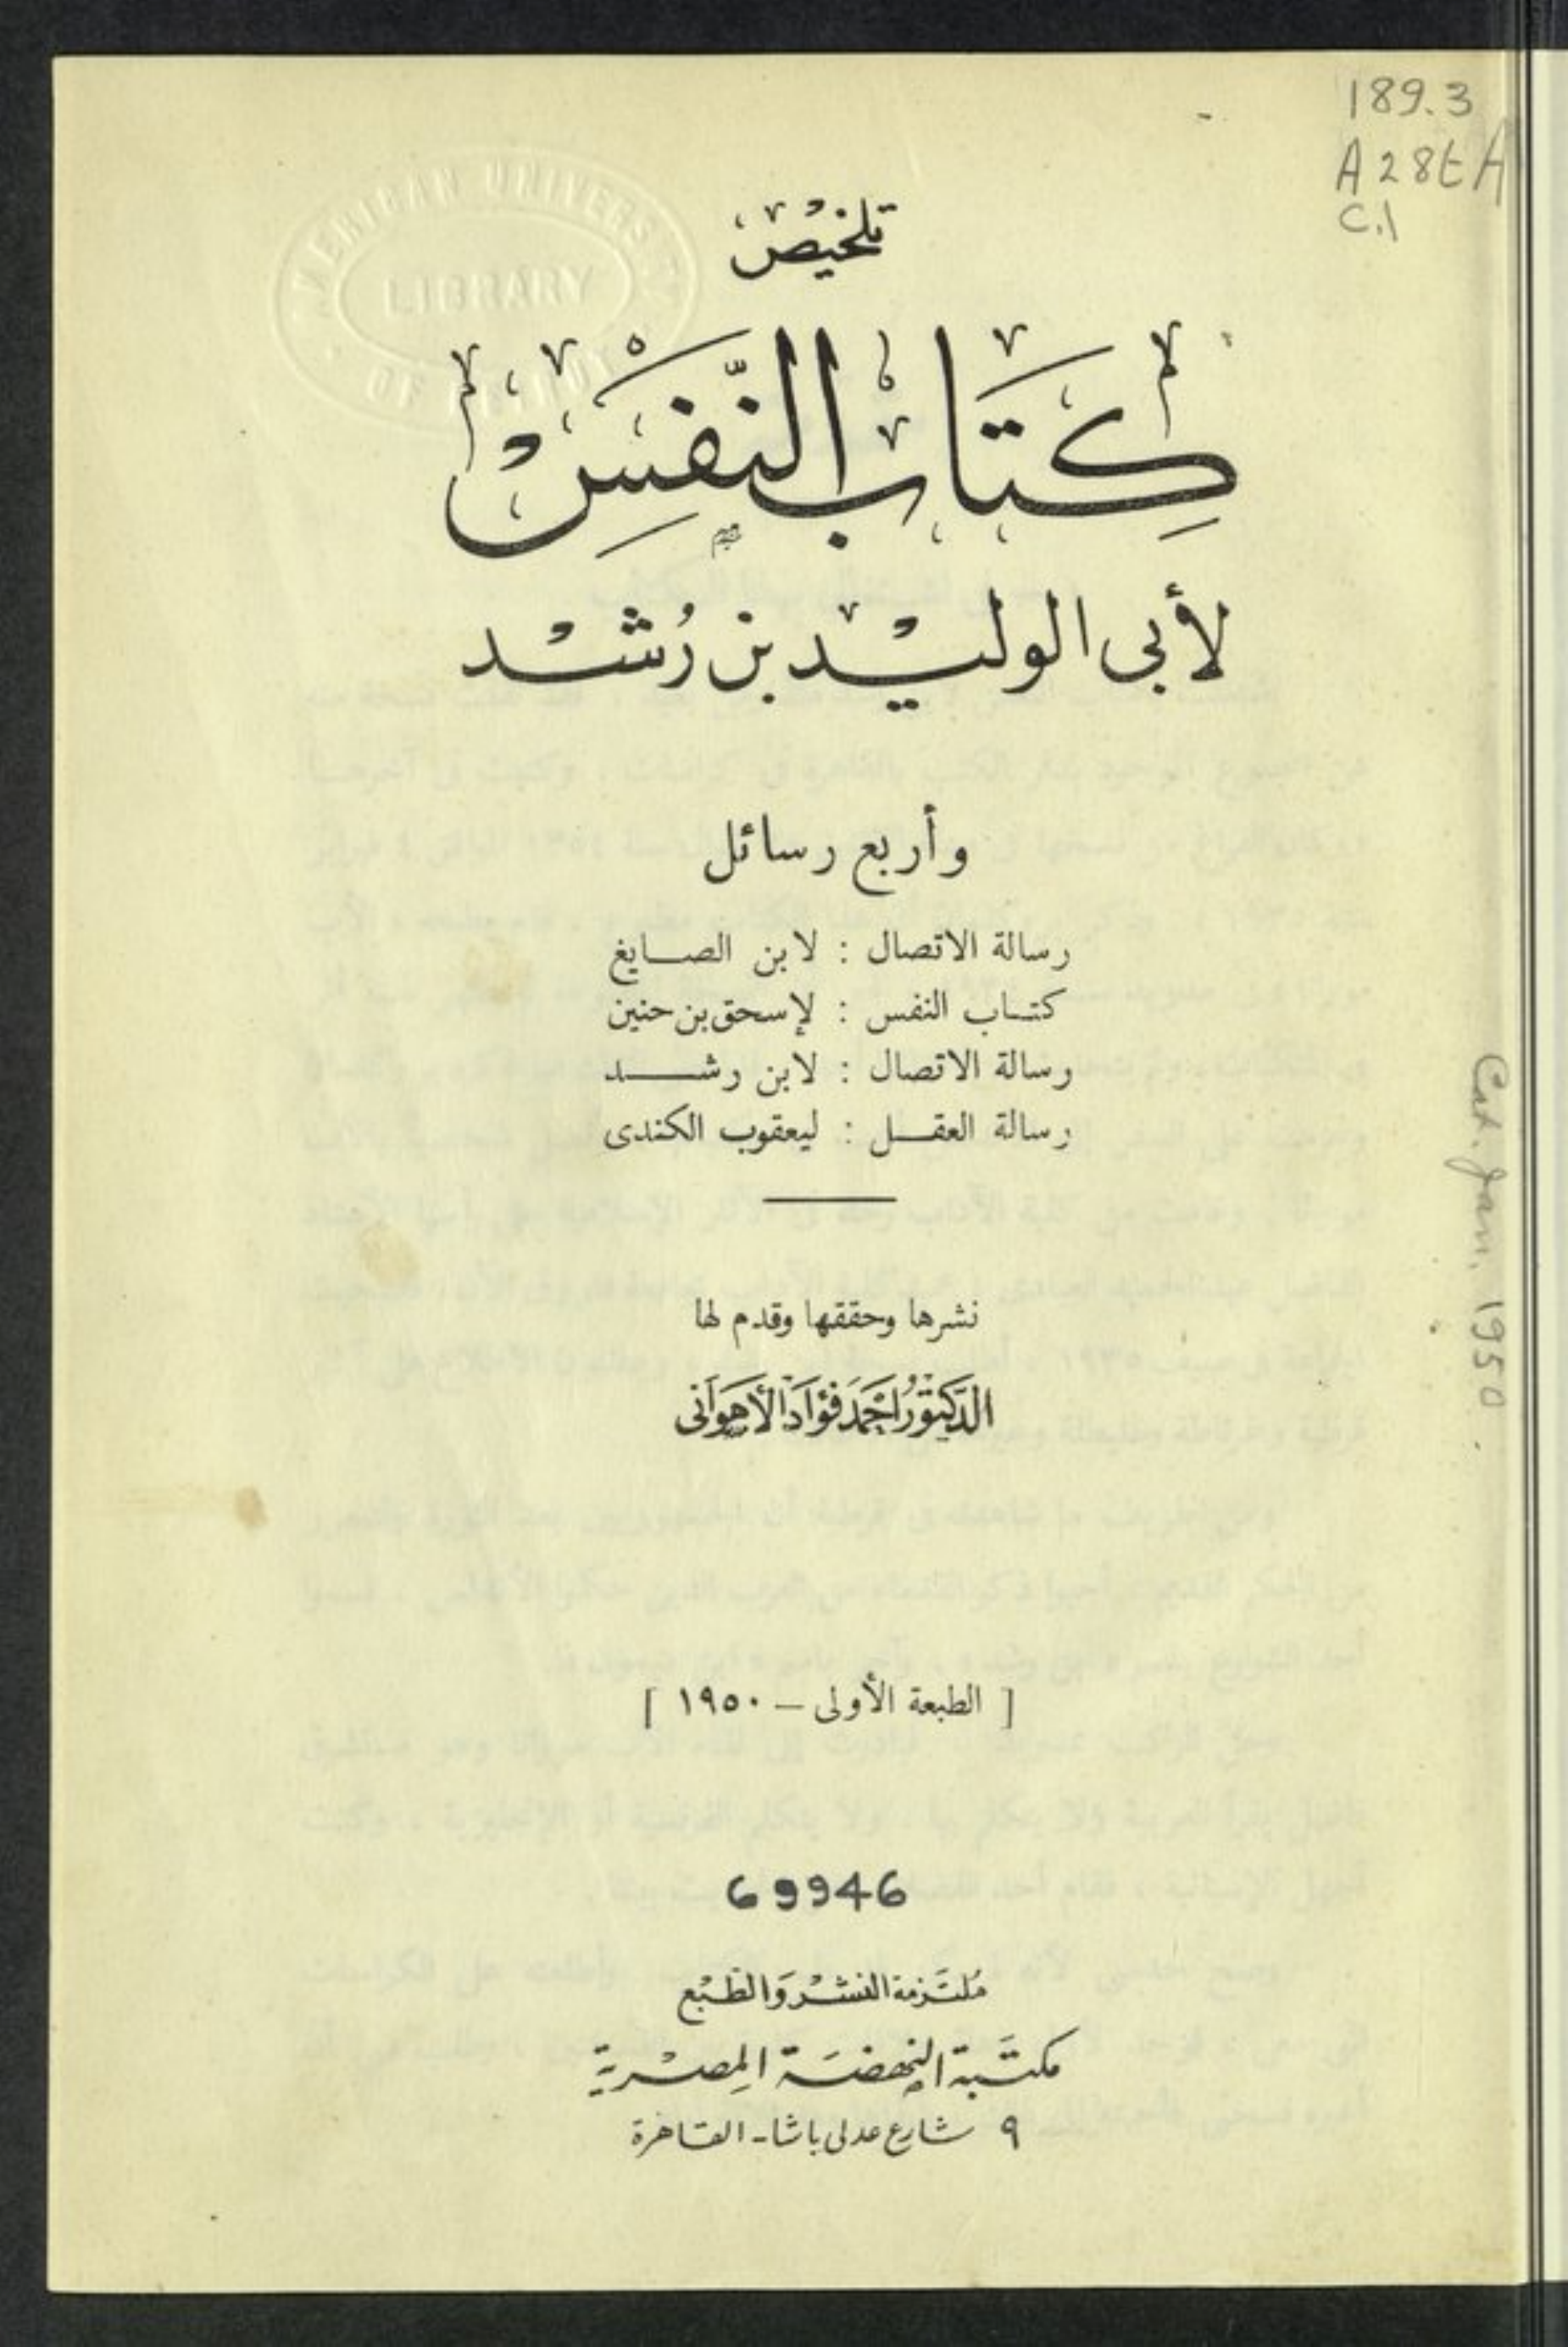 189.3
A28tA
C.1
AMERICAN UNIVERSITY
LIBRARY
OF BEIRUT
تلخيص
كِتَابُ النَّفْسِ
لأبى الوليد بن رُشد
وأربع رسائل
رسالة الاتصال : لابن الصايغ
كتاب النفس : لإسحق بن حنين
رسالة الاتصال : لابن رشد
رسالة العقل : ليعقوب الكندى
Cat. Jan. 1950
نشرها وحققها وقدم لها
الدكتور أحمد فؤاد الأهوانى
[ الطبعة الأولى – ١٩٥٠ ]
69946
مُلتَزمة النشْر وَالطّبْع
مكتَبة النهضَة المِصْرية
٩ شارع عدلى باشا - القاهرة